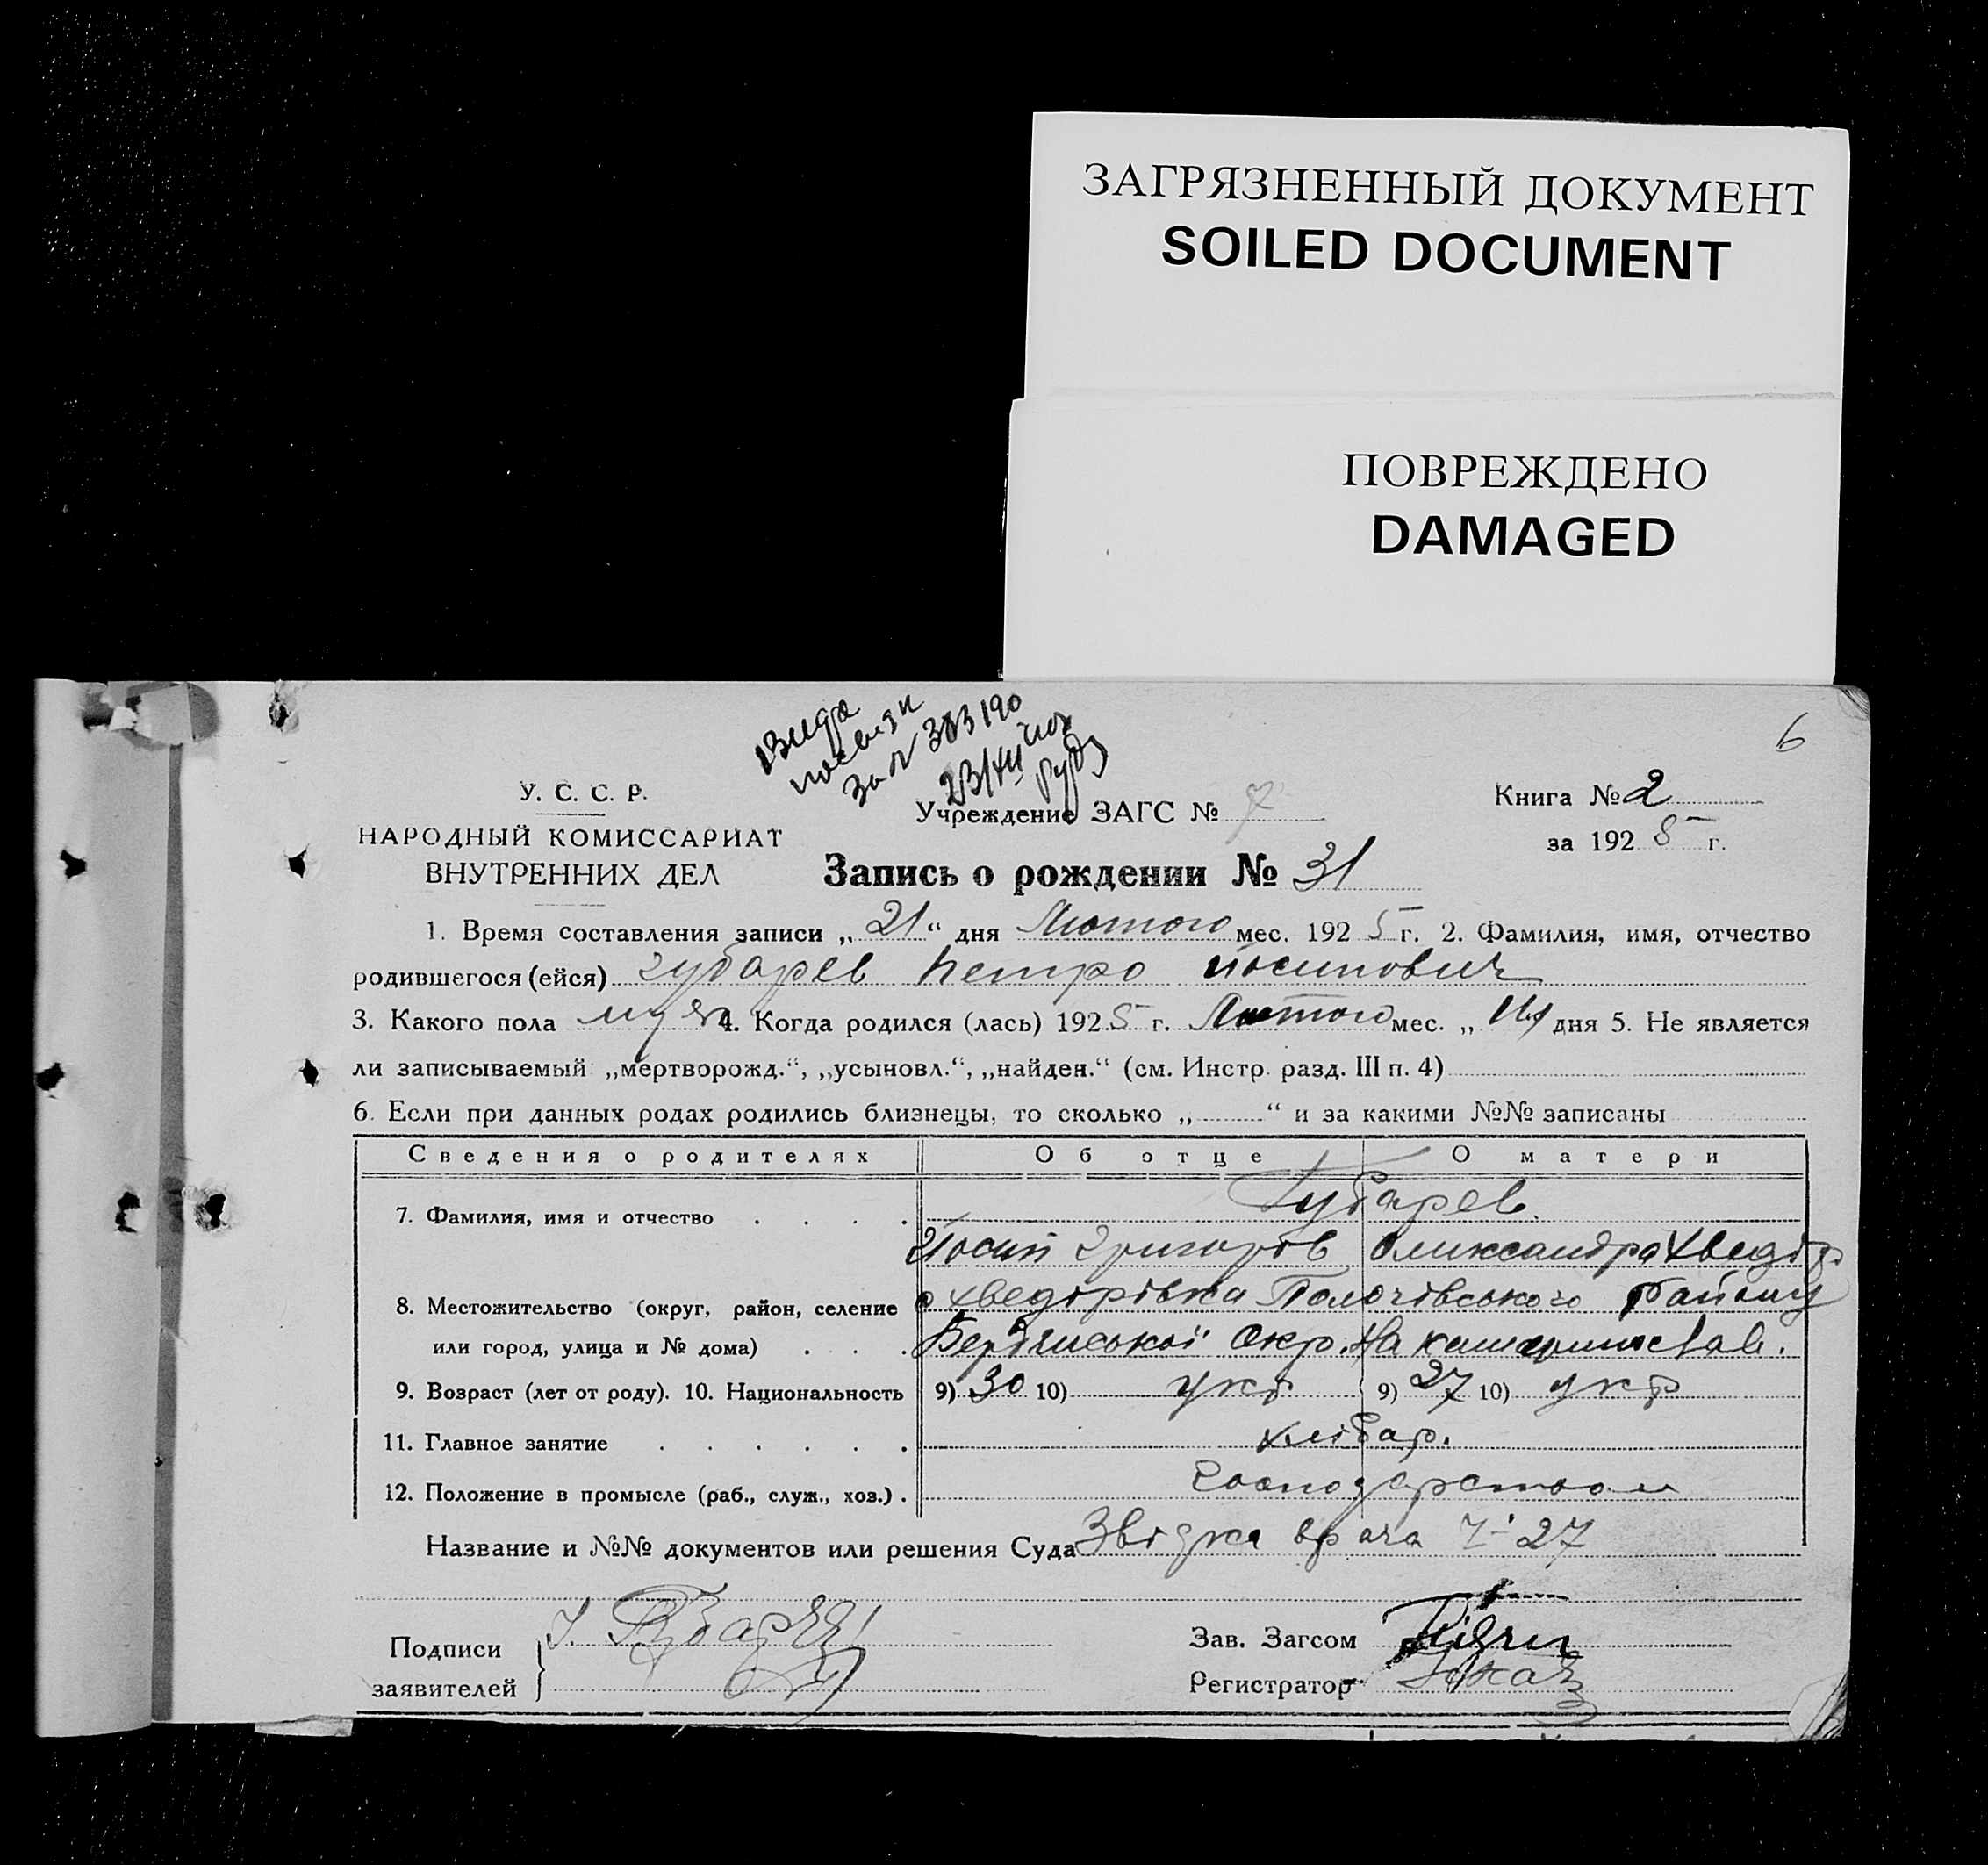 ЗАГРЯЗНЕННЫЙ ДОКУМЕНТ
SOILED DOCUMENT
ПОВРЕЖДЕНО
DAMAGED
6
У. С. С. Р.
НАРОДНЫЙ КОМИССАРИАТ
ВНУТРЕННИХ ДЕЛ
Учреждение ЗАГС № 7
Книга № 2
за 1925 г.
Запись о рождении № 31
1. Время составления записи „21“ дня Лютого мес. 1925 г. 2. Фамилия, имя, отчество
родившегося (ейся) Губарев Петро Йосипович
3. Какого пола муж 4. Когда родился (лась) 1925 г. Лютого мес. „ дня 5. Не является
ли записываемый „мертворожд.“, „усыновл.“, „найден.“ (см. Инстр. разд. III п. 4)
6. Если при данных родах родились близнецы, то сколько „ “ и за какими №№ записаны
Сведения о родителях Об отце О матери
7. Фамилия, имя и отчество Губарев.
Йосип Григоров Олександра Хведор
8. Местожительство (округ, район, селение с Хведорівка Пологівського Району
или город, улица и № дома) Бердянської Окр.
9. Возраст (лет от роду). 10. Национальность 9) 30 10) укр 9) 27 10) укр
11. Главное занятие хлібор.
12. Положение в промысле (раб., служ., хоз.) Господарством
Название и №№ документов или решения Суда Звідка врача 27
Подписи
заявителей
Зав. Загсом
Регистратор